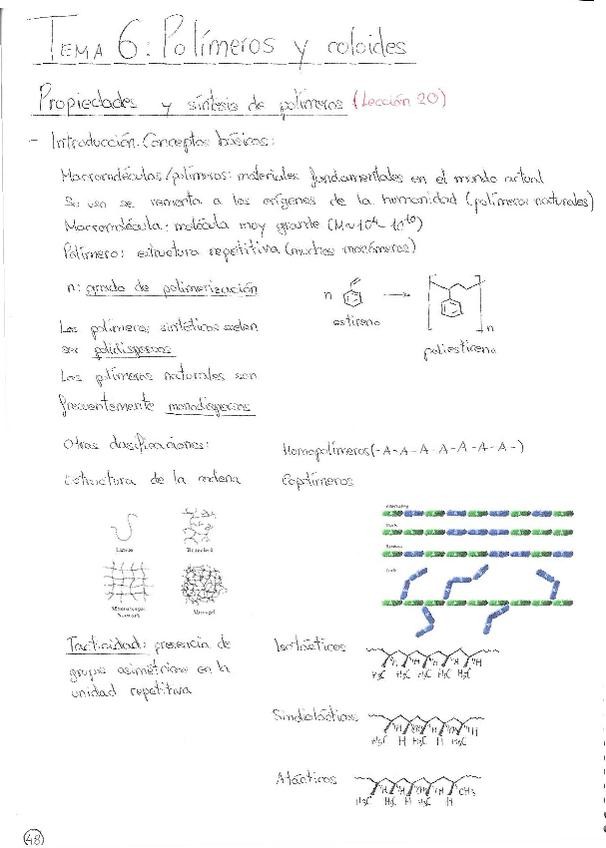 TEMA 6: Polímeros y coloides
Propiedades y síntesis de polímeros (Lección 20)
- Introducción. Conceptos básicos:
Macromoléculas/polímeros: materiales fundamentales en el mundo actual
Su uso se remonta a los orígenes de la humanidad (polímeros naturales)
Macromolécula: molécula muy grande (M~10⁴-10¹⁰)
Polímero: estructura repetitiva (muchos monómeros)
n: grado de polimerización
n
estireno
n
poliestireno
Los polímeros sintéticos suelen
ser polidispersos
Los polímeros naturales son
frecuentemente monodispersos
Otras clasificaciones:
Homopolímeros (-A-A-A-A-A-A-A-)
Estructura de la cadena
Copolímeros
Linear
Branched
Macroscopic
Network
Microgel
Tacticidad: presencia de
grupos asimétricos en la
unidad repetitiva
Isotácticos
H₃C H₃C H₃C H₃C H₃C
Sindiotácticos
H₃C H H₃C H H₃C
Atácticos
H₃C H₃C H H₃C H CH₃
48